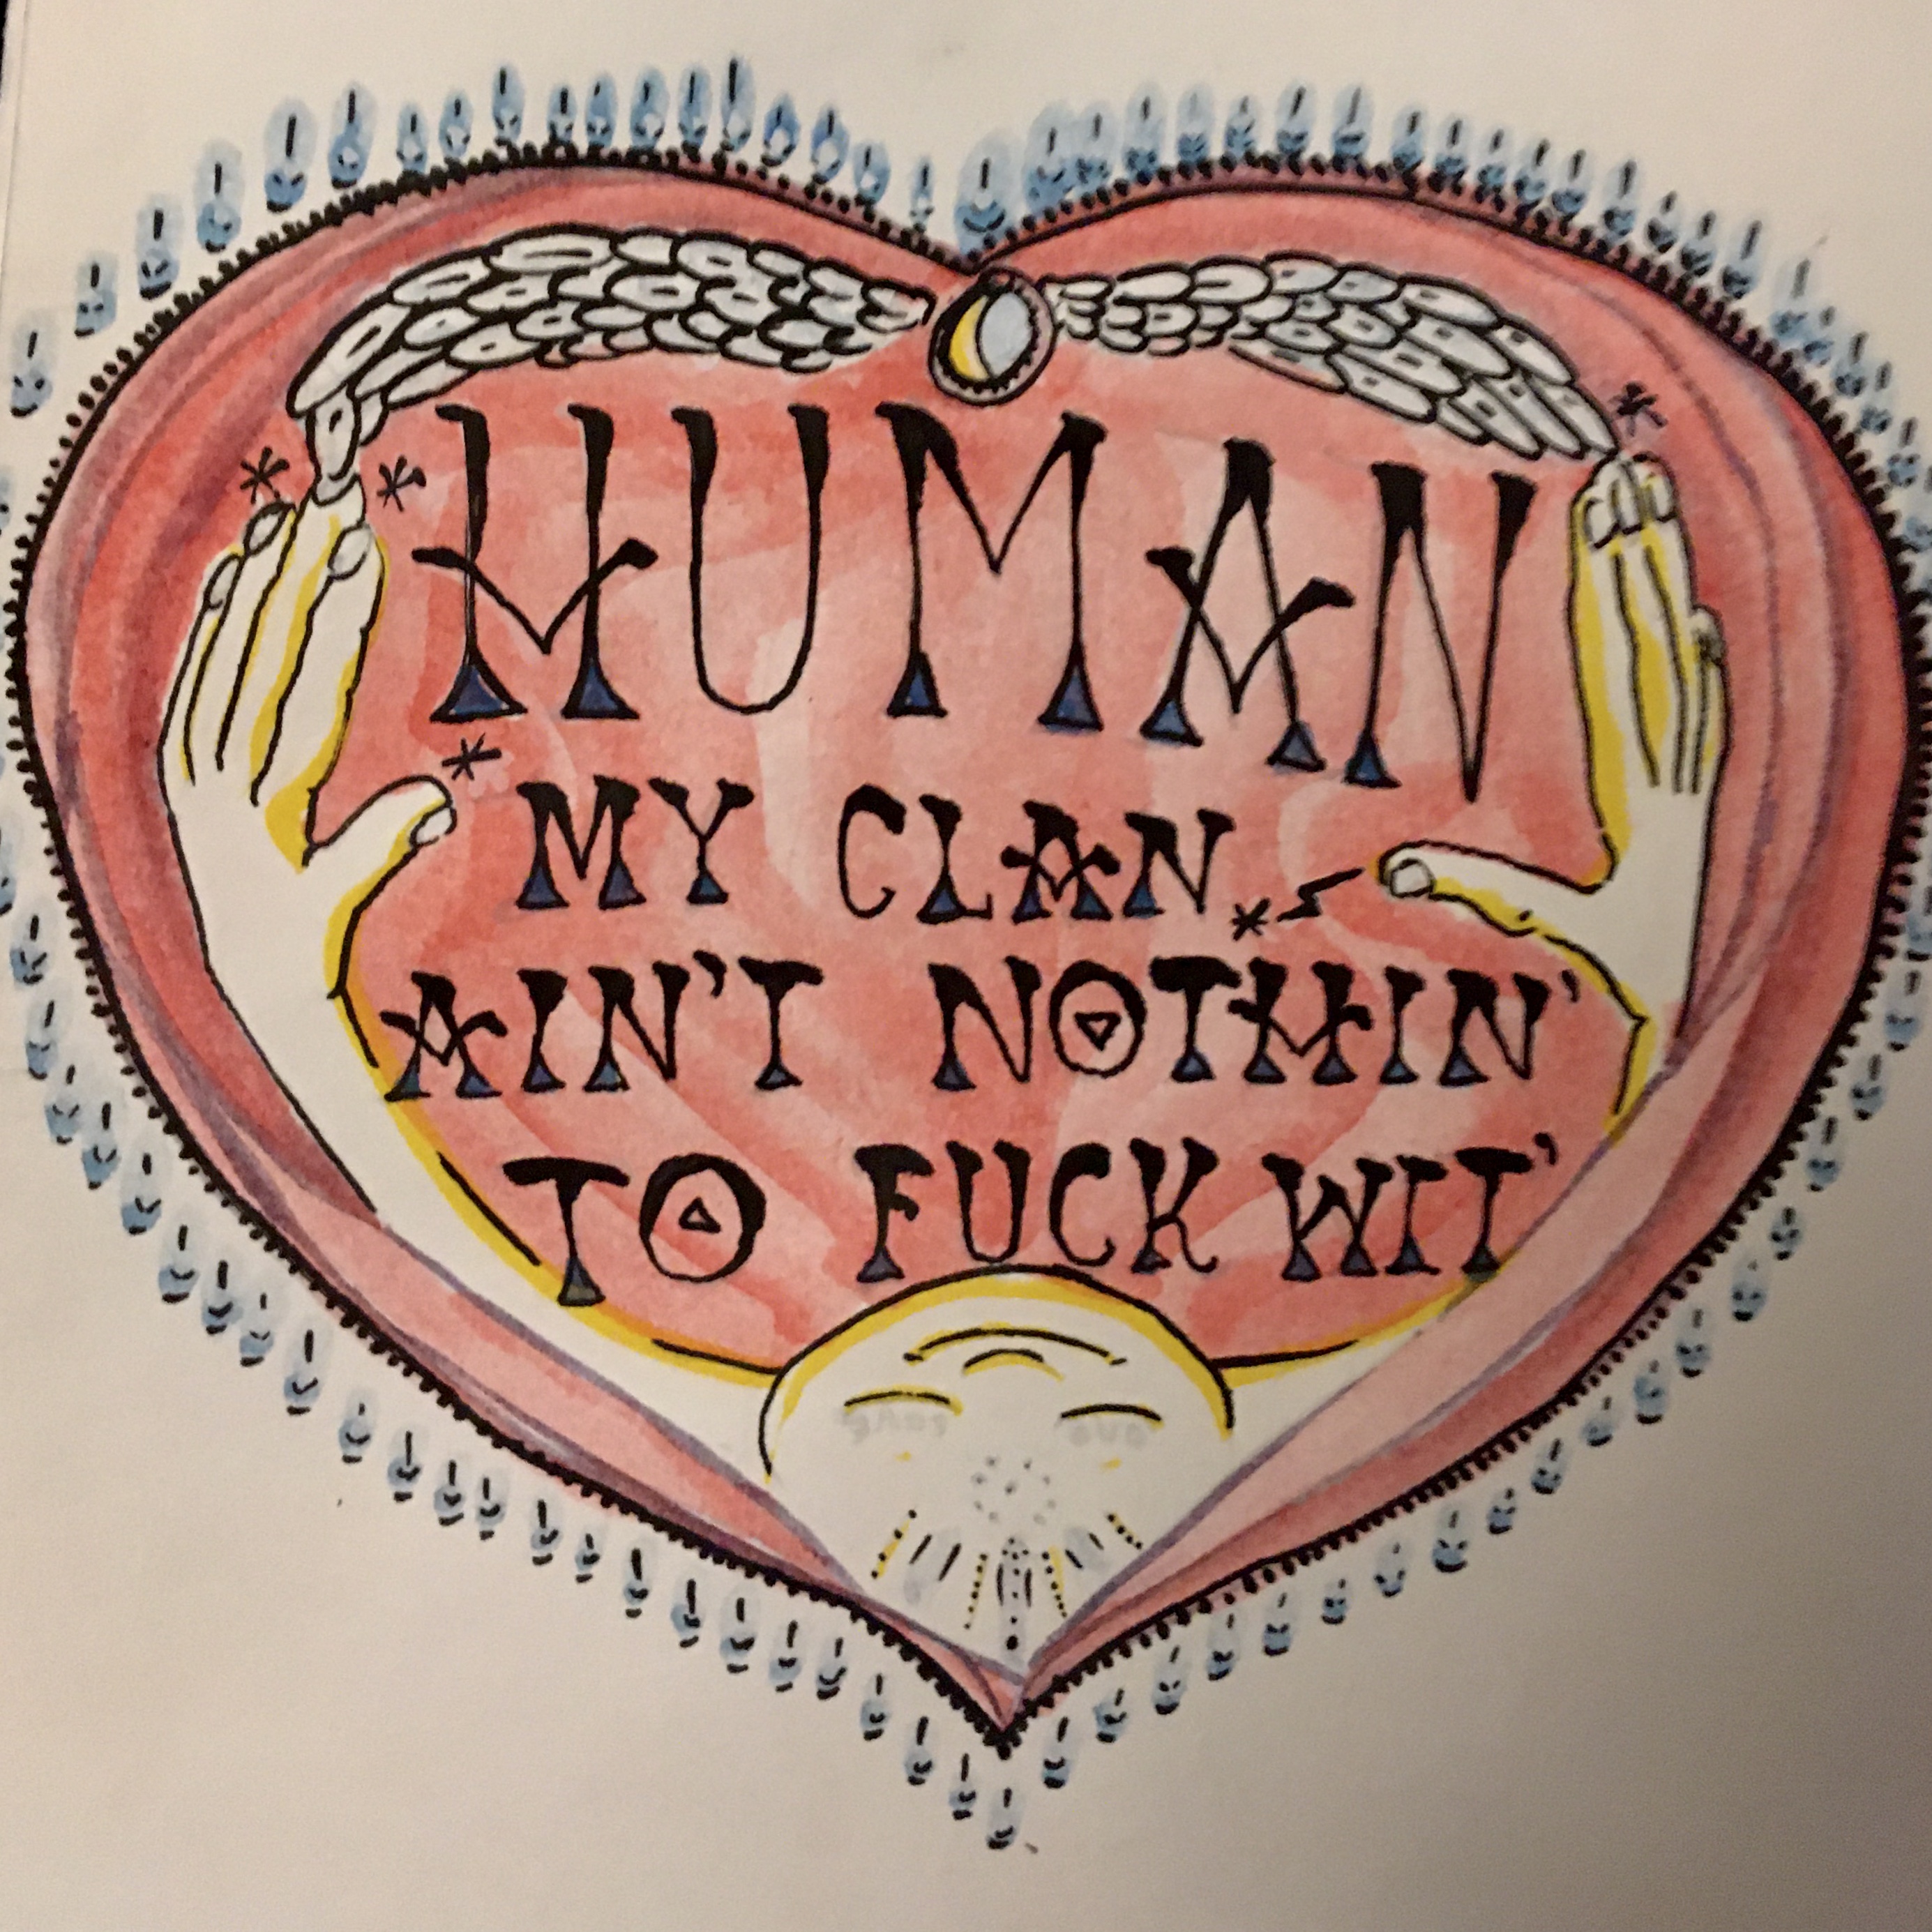 HUMAN
MY CLAN
AIN'T NOTHIN'
TO FUCK WIT'